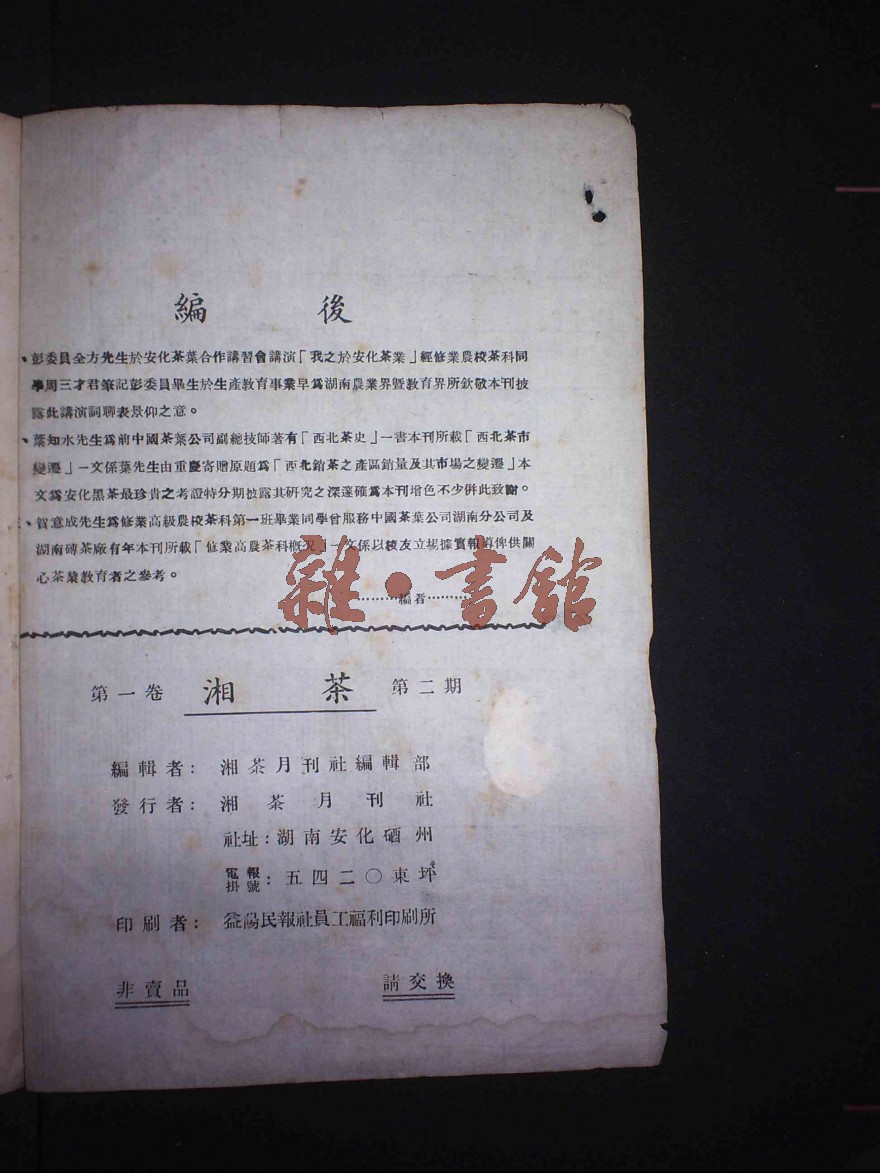 編 後
、彭委員全方先生於安化茶葉合作講習會講演「我之於安化茶業」經修業農校茶科同
學周三才君筆記彭委員畢生於生產教育事業早為湖南農業界暨教育界所欽敬本刊披
露此講演詞聊表景仰之意。
、葉知水先生為前中國茶葉公司副總技師著有「西北茶史」一書本刊所載「西北茶市
變遷」一文係葉先生由重慶寄贈原題為「西北銷茶之產區銷量及其市場之變遷」本
文為安化黑茶最珍貴之考證特分期披露其研究之深邃確為本刊增色不少併此致謝。
、賀意成先生為修業高級農校茶科第一班畢業同學曾服務中國茶葉公司湖南分公司及
湖南磚茶廠有年本刊所載「修業高農茶科概況」一文係以校友立場據實報導俾供關
心茶業教育者之參考。
………編者………
雜·書館
第一卷 湘 茶 第二期
編輯者： 湘茶月刊社編輯部
發行者： 湘茶月刊社
社址：湖南安化硒州
電報掛號：五四二〇東坪
印刷者： 益陽民報社員工福利印刷所
非賣品 請交換